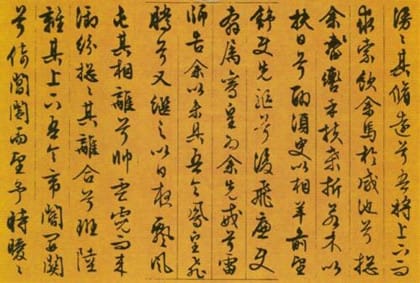 漫〻其脩遠兮吾將上下而
求索飲余馬於咸池兮摠
余轡乎扶桑折若木以
拂日兮聊須臾以相羊前望
舒使先驅兮後飛廉使
奔屬鸞皇為余先戒兮雷
師告余以未具吾令鳳皇飛
騰兮又繼之以日夜飄風
屯其相離兮帥雲霓而來
御紛摠〻其離合兮班陸
離其上下吾令帝閽開關
兮倚閶闔而望予時曖〻